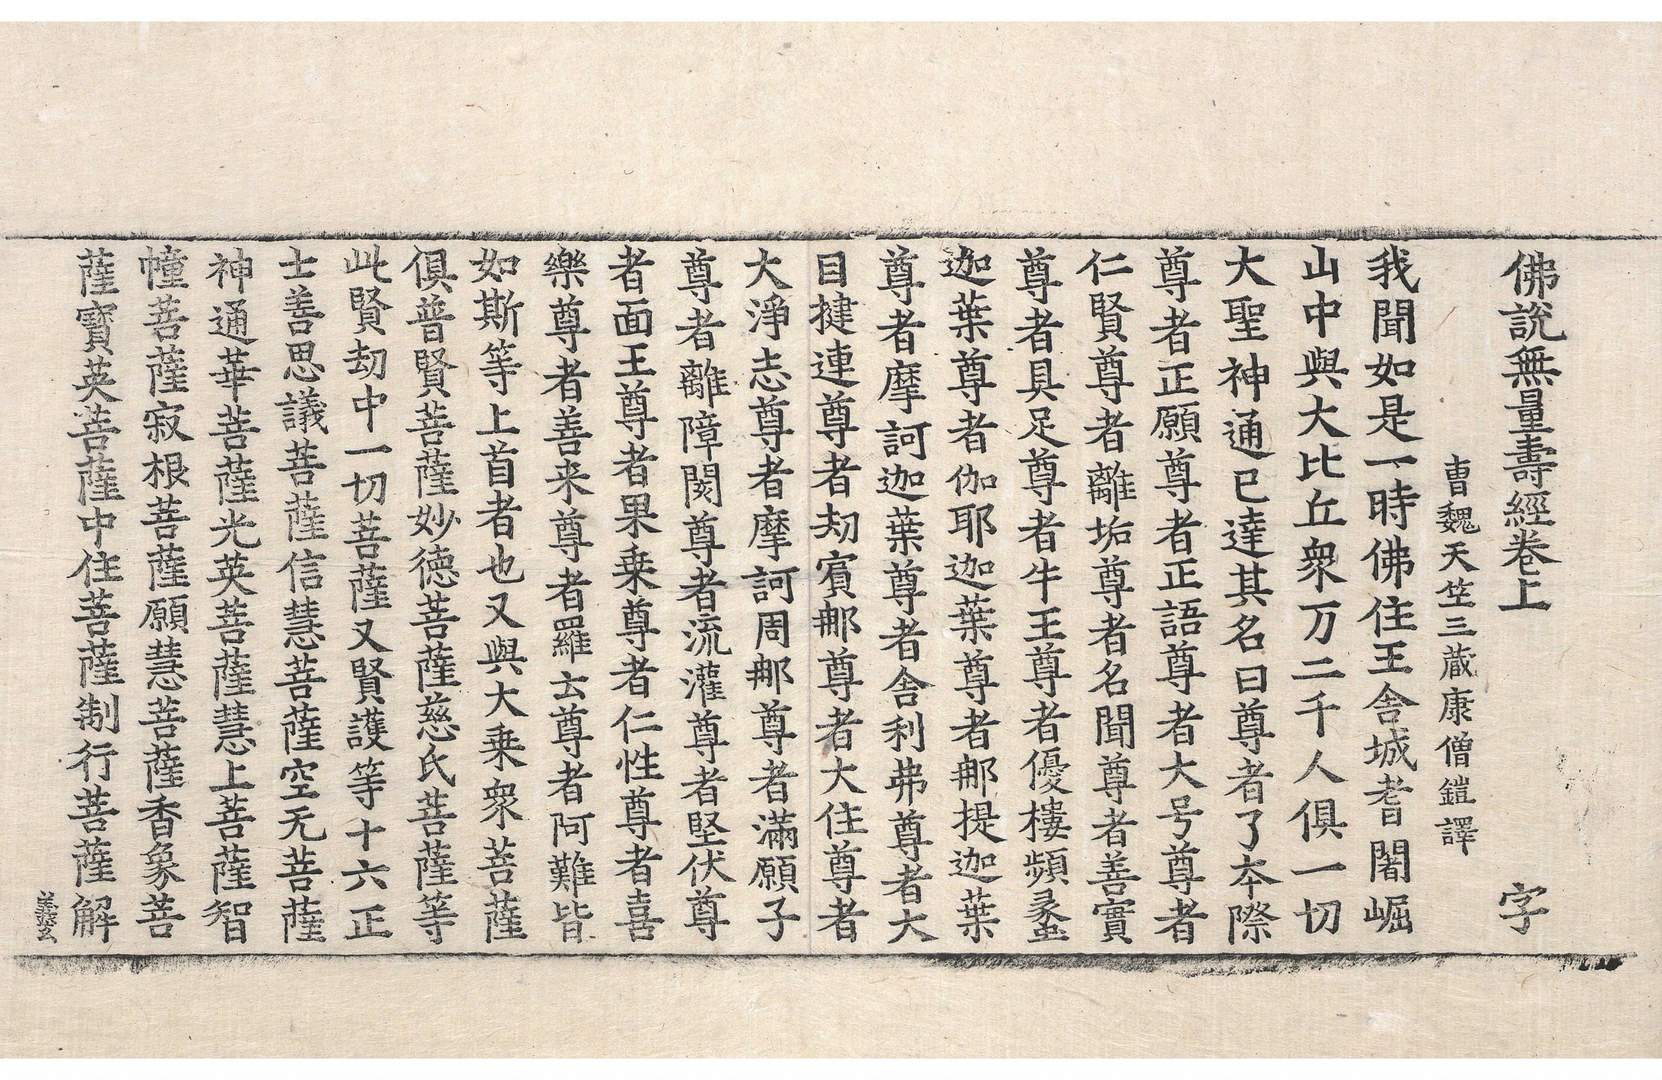 佛說無量壽經卷上　字
曹魏天竺三藏康僧鎧譯
我聞如是一時佛住王舍城耆闍崛
山中與大比丘衆万二千人俱一切
大聖神通已達其名曰尊者了本際
尊者正願尊者正語尊者大号尊者
仁賢尊者離垢尊者名聞尊者善實
尊者具足尊者牛王尊者優樓頻蠡
迦葉尊者伽耶迦葉尊者那提迦葉
尊者摩訶迦葉尊者舍利弗尊者大
目揵連尊者劫賓那尊者大住尊者
大淨志尊者摩訶周那尊者滿願子
尊者離障閡尊者流灌尊者堅伏尊
者面王尊者果乗尊者仁性尊者喜
樂尊者善来尊者羅云尊者阿難皆
如斯等上首者也又與大乗衆菩薩
俱普賢菩薩妙德菩薩慈氏菩薩等
此賢劫中一切菩薩又賢護等十六正
士善思議菩薩信慧菩薩空无菩薩
神通華菩薩光英菩薩慧上菩薩智
幢菩薩寂根菩薩願慧菩薩香象菩
薩寶英菩薩中住菩薩制行菩薩解